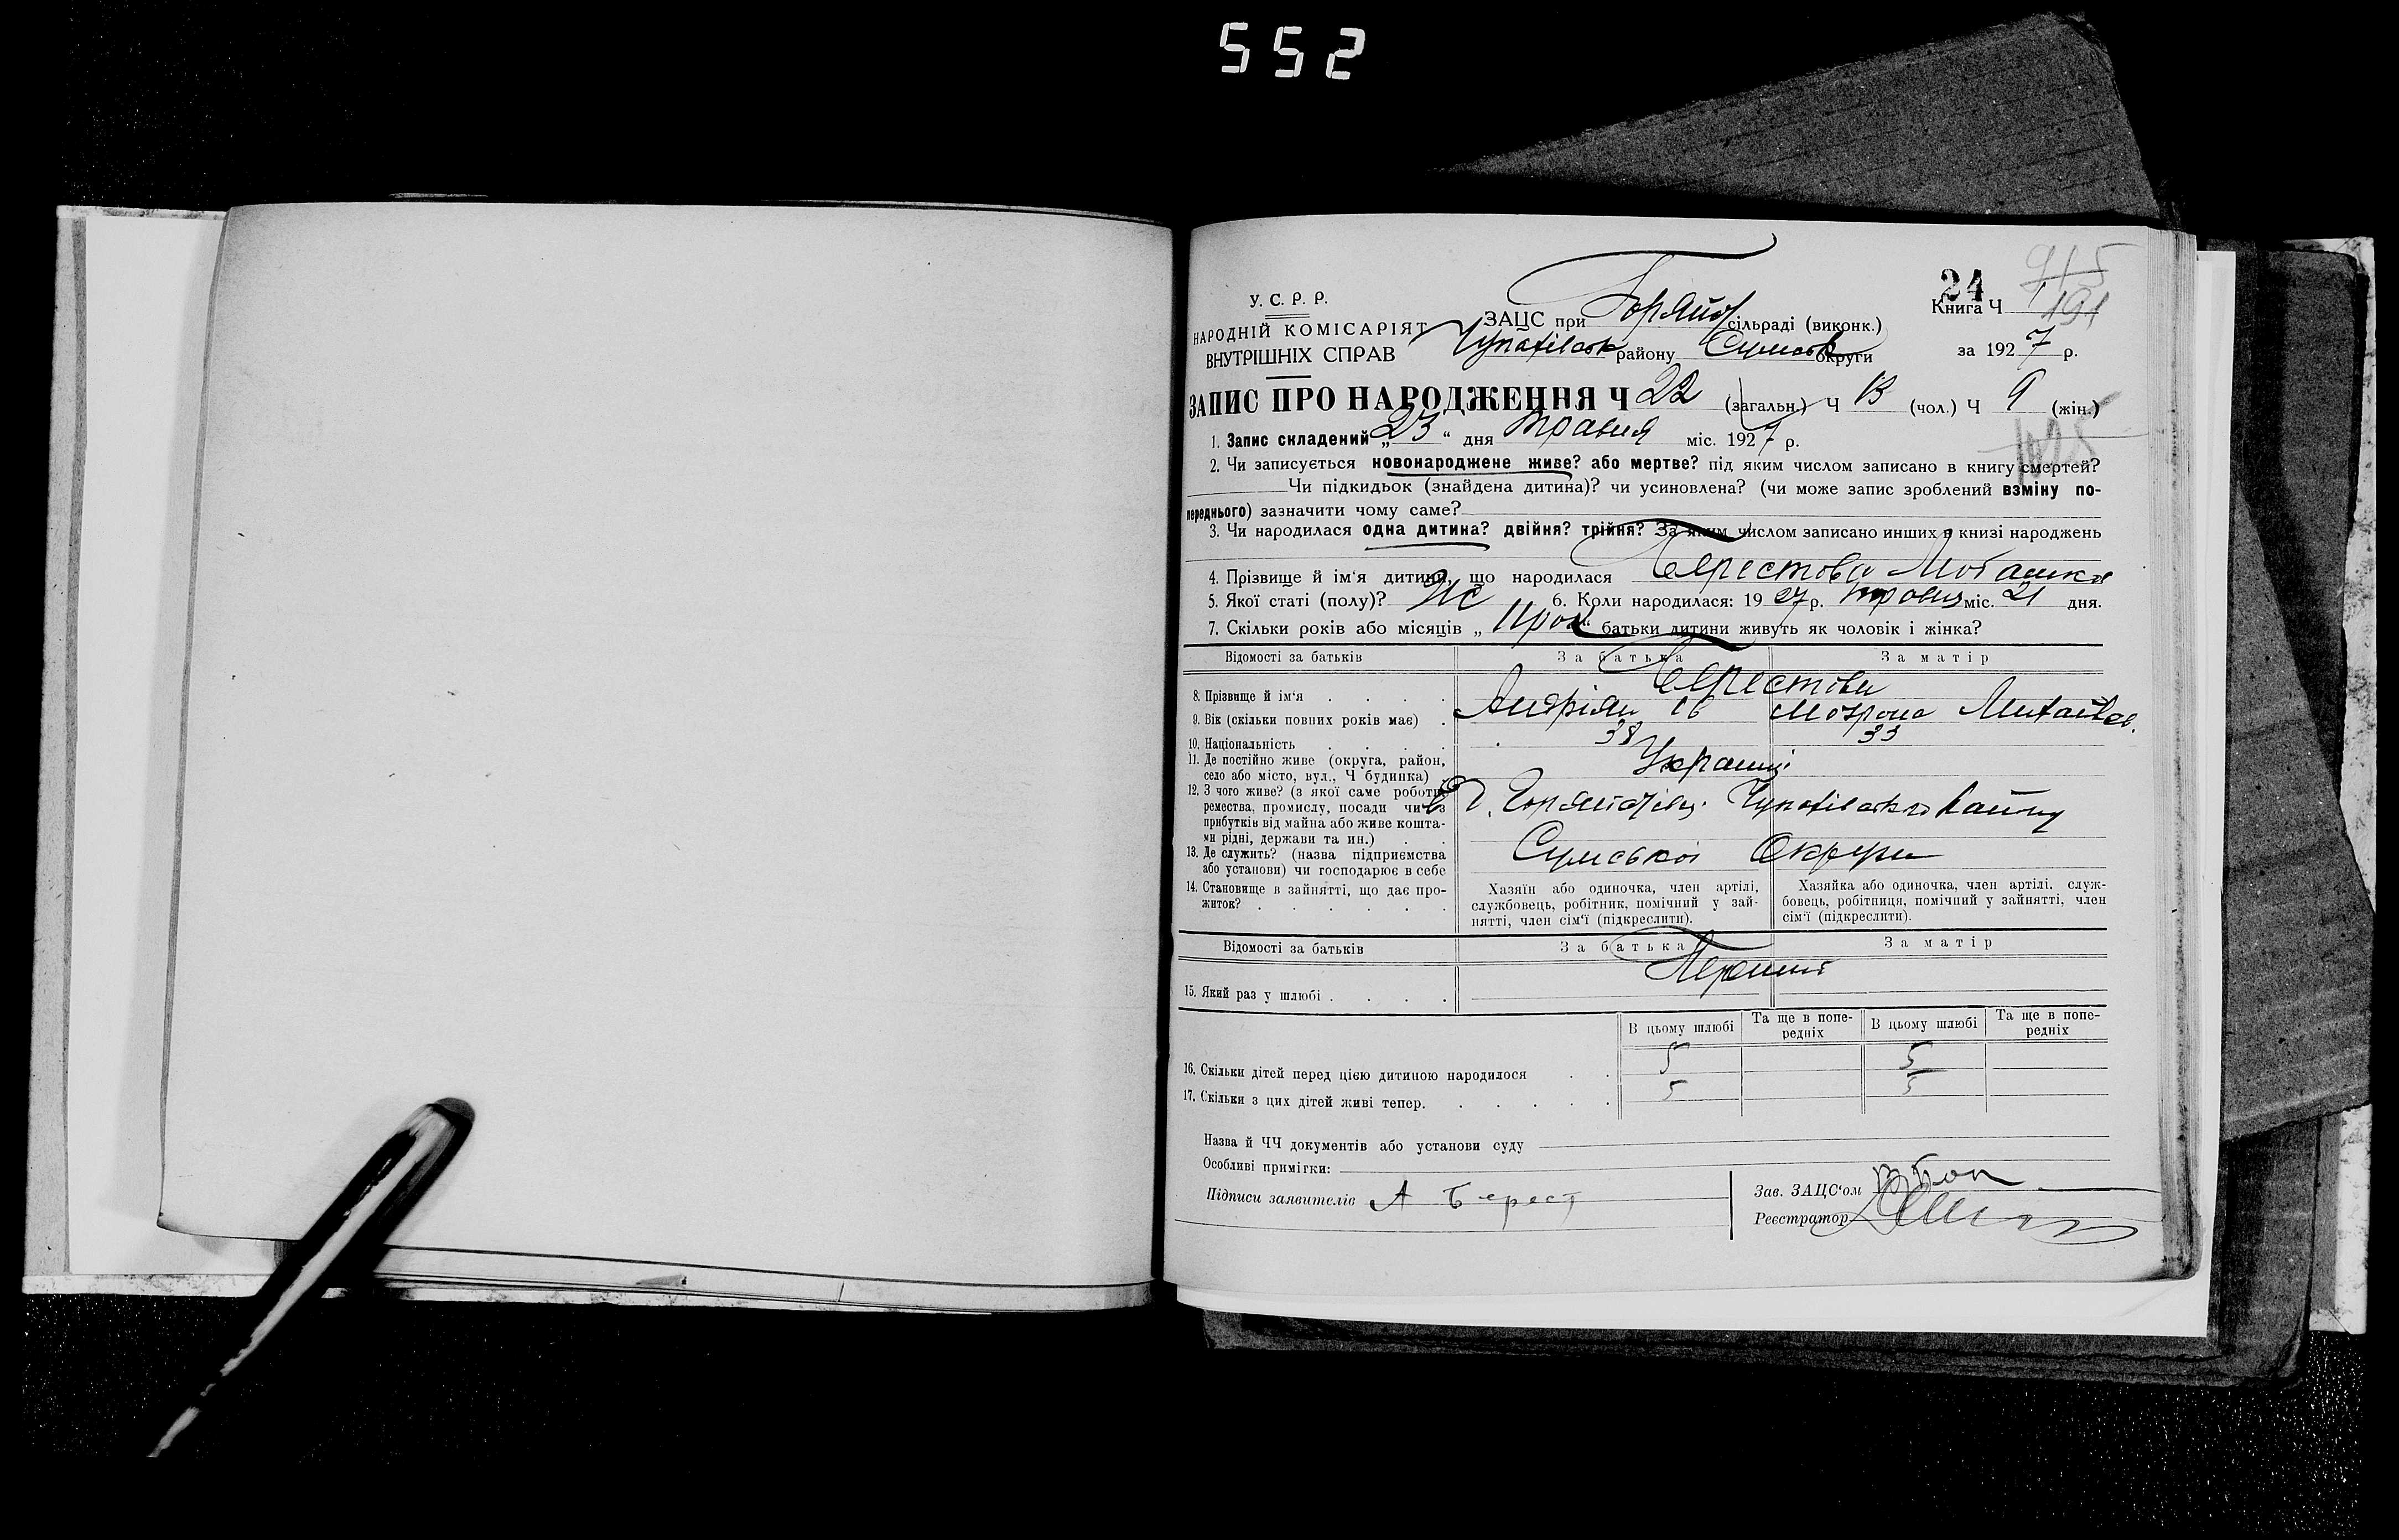 552
24
915
У. С. Р. Р.
НАРОДНІЙ КОМІСАРІЯТ
ВНУТРІШНІХ СПРАВ
ЗАЦС при сільраді (виконк.)
району Сумськ округи
Книга Ч 191
за 1927 р.
ЗАПИС ПРО НАРОДЖЕННЯ Ч 22 (загальн.) Ч 13 (чол.) Ч 9 (жін.)
1. Запис складений „23“ дня Травня міс. 1927 р.
1025
2. Чи записується новонароджене живе? або мертве? під яким числом записано в книгу смертей?
Чи підкидьок (знайдена дитина)? чи усиновлена? (чи може запис зроблений взміну по-
переднього) зазначити чому саме?
3. Чи народилася одна дитина? двійня? трійня? За яким числом записано инших в книзі народжень
4. Прізвище й ім‘я дитини, що народилася Берестова
5. Якої статі (полу)? Жс 6. Коли народилася: 1927 р. травня міс. 21 дня.
7. Скільки років або місяців „ “ батьки дитини живуть як чоловік і жінка?
Відомості за батьків За батька За матір
8. Прізвище й ім‘я Берестови
9. Вік (скільки повних років має) Андріян Мотрона
38 33
10. Національність Україні
11. Де постійно живе (округа, район,
село або місто, вул., Ч будинка)
12. З чого живе? (з якої саме роботи,
ремества, промислу, посади чи з
прибутків від майна або живе кошта-
ми рідні, держави та ин.)
13. Де служить? (назва підприємства
або установи) чи господарює в себе
Сумської Округи
14. Становище в зайнятті, що дає про-
житок?
Хазяїн або одиночка, член артілі,
службовець, робітник, помічний у зай-
нятті, член сім‘ї (підкреслити).
Хазяйка або одиночка, член артілі, служ-
бовець, робітниця, помічний у зайнятті, член
сім‘ї (підкреслити).
Відомості за батьків За батька За матір
15. Який раз у шлюбі Перший
В цьому шлюбі Та ще в попе-
редніх В цьому шлюбі Та ще в попе-
редніх
16. Скільки дітей перед цією дитиною народилося 5 5
17. Скільки з цих дітей живі тепер. 5 5
Назва й ЧЧ документів або установи суду
Особливі примітки:
Підписи заявителів А Берест
Зав. ЗАЦС‘ом
Реєстратор